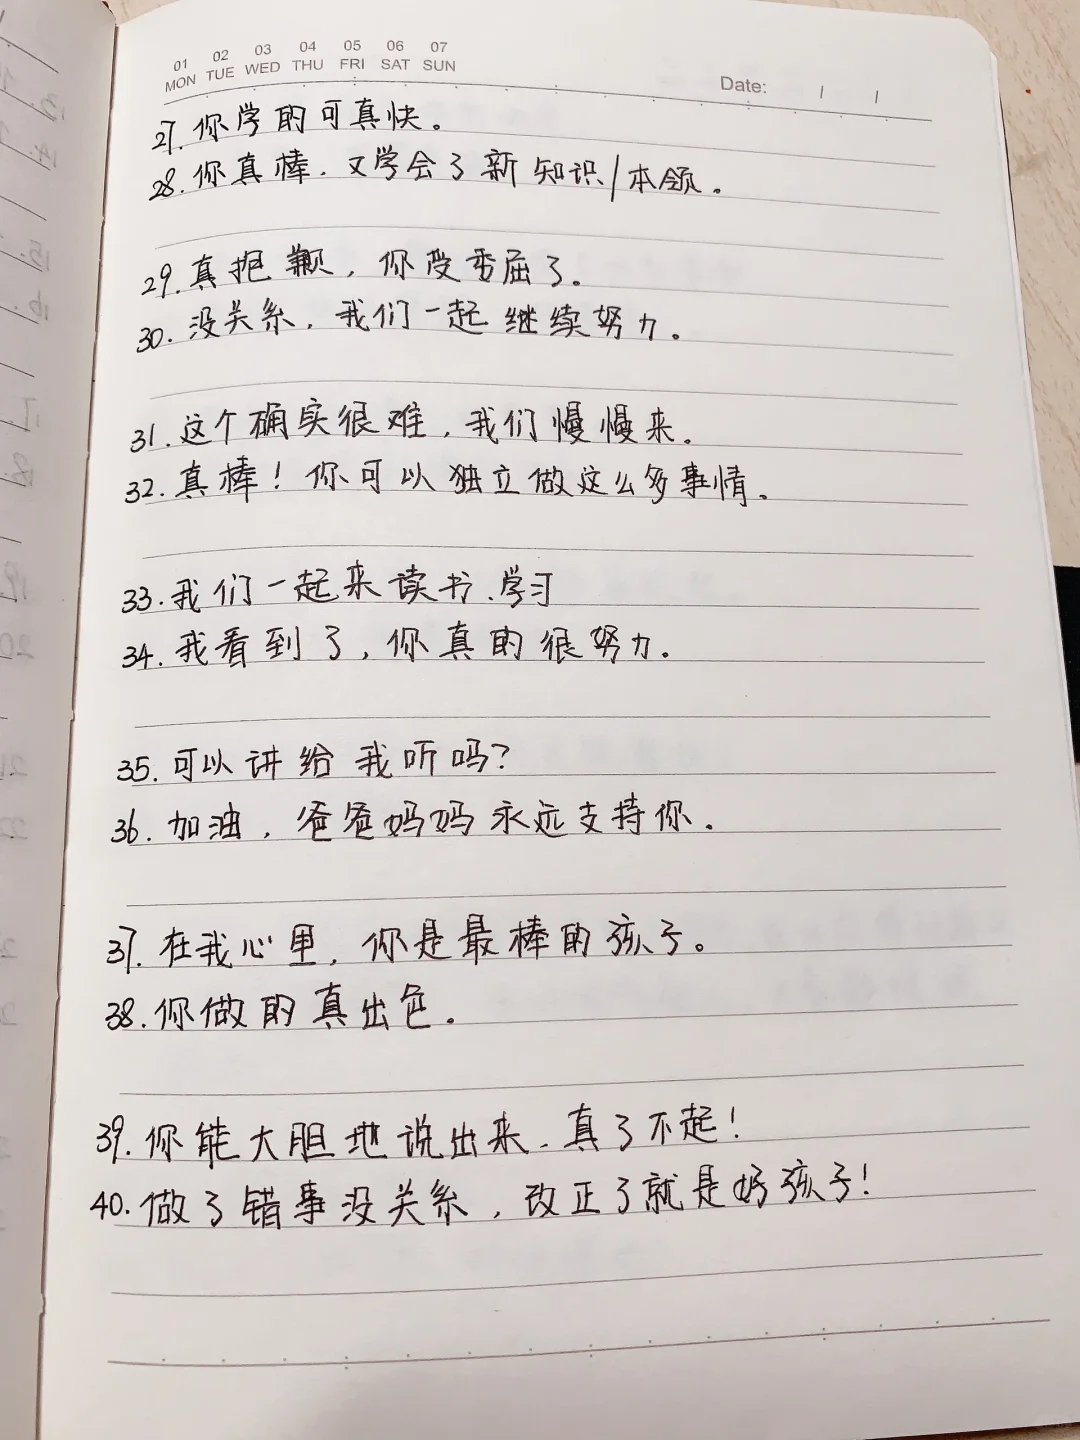 01 02 03 04 05 06 07
MON TUE WED THU FRI SAT SUN
Date:
27. 你学的可真快。
28. 你真棒，又学会了新知识/本领。
29. 真抱歉，你受委屈了。
30. 没关系，我们一起继续努力。
31. 这个确实很难，我们慢慢来。
32. 真棒！你可以独立做这么多事情。
33. 我们一起来读书、学习
34. 我看到了，你真的很努力。
35. 可以讲给我听吗？
36. 加油，爸爸妈妈永远支持你。
37. 在我心里，你是最棒的孩子。
38. 你做的真出色。
39. 你能大胆地说出来、真了不起！
40. 做了错事没关系，改正了就是好孩子！